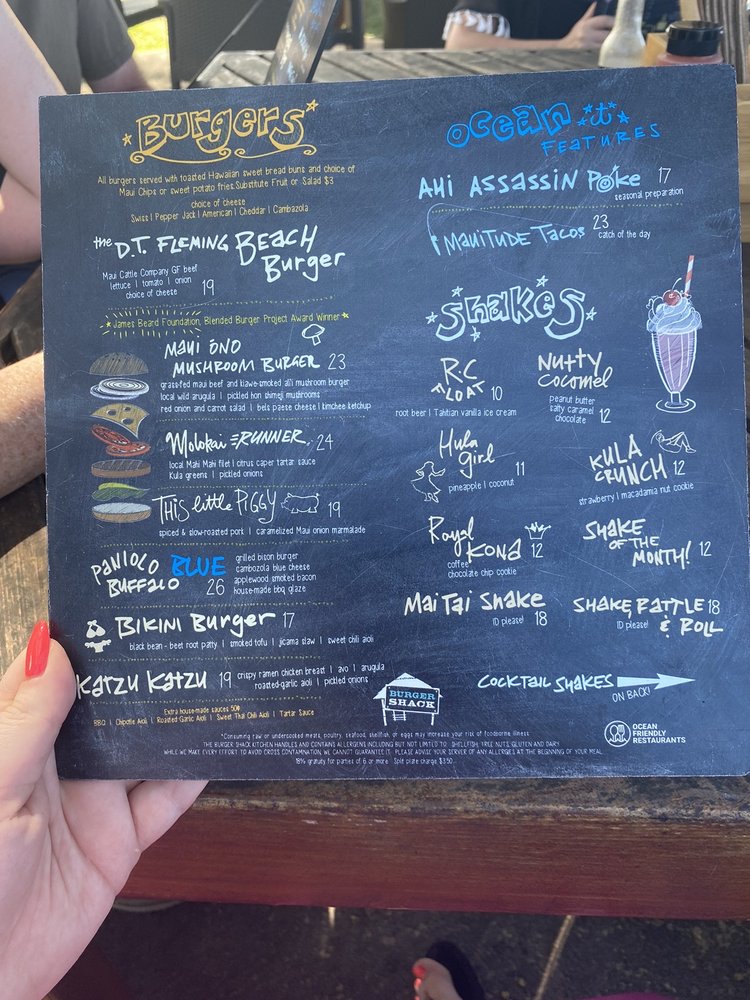 Burgers
All burgers served with toasted Hawaiian sweet bread buns and choice of
Maui Chips or sweet potato fries. Substitute Fruit or Salad $3
choice of cheese
Swiss | Pepper Jack | American | Cheddar | Cambazola
the D.T. FLEMING BEACH Burger
Maui Cattle Company GF beef
lettuce | tomato | onion
choice of cheese
19
James Beard Foundation, Blended Burger Project Award Winner
Maui ono
MUSHROOM BURGER 23
grass-fed maui beef and kiawe-smoked ali'i mushroom burger
local wild arugula | pickled hon shimeji mushrooms
red onion and carrot salad | bel's paese cheese | kimchee ketchup
Molokai RUNNER 24
local Mahi Mahi filet | citrus caper tartar sauce
Kula greens | pickled onions
THIS little PIGGY 19
spiced & slow-roasted pork | caramelized Maui onion marmalade
PANIOLO BLUE
BUFFALO 26
grilled bison burger
cambozola blue cheese
applewood smoked bacon
house-made bbq glaze
BIKINI Burger 17
black bean - beet root patty | smoked tofu | jicama slaw | sweet chili aioli
KATZU KATZU 19
crispy ramen chicken breast | avo | arugula
roasted-garlic aioli | pickled onions
Extra house-made sauces 50¢
BBQ | Chipotle Aioli | Roasted Garlic Aioli | Sweet Thai Chili Aioli | Tartar Sauce
ocean it
FEATURES
AHI ASSASSIN Poke 17
seasonal preparation
MAUITUDE TACOS 23
catch of the day
Shakes
RC
FLOAT 10
root beer | Tahitian vanilla ice cream
Nutty
Cocomel
peanut butter
salty caramel
chocolate 12
Hula
girl 11
pineapple | coconut
KULA
CRUNCH 12
strawberry | macadamia nut cookie
Royal
KONA 12
coffee
chocolate chip cookie
SHAKE
OF THE
MONTH! 12
Mai Tai Shake
ID please! 18
SHAKE, RATTLE 18
ID please! & ROLL
COCKTAIL SHAKES
ON BACK!
BURGER
SHACK
OCEAN
FRIENDLY
RESTAURANTS
*Consuming raw or undercooked meats, poultry, seafood, shellfish, or eggs may increase your risk of foodborne illness
THE BURGER SHACK KITCHEN HANDLES AND CONTAINS ALLERGENS INCLUDING BUT NOT LIMITED TO: SHELLFISH, TREE NUTS, GLUTEN AND DAIRY.
WHILE WE MAKE EVERY EFFORT TO AVOID CROSS CONTAMINATION, WE CANNOT GUARANTEE IT. PLEASE ADVISE YOUR SERVER OF ANY ALLERGIES AT THE BEGINNING OF YOUR MEAL.
18% gratuity for parties of 6 or more. Split plate charge $3.50